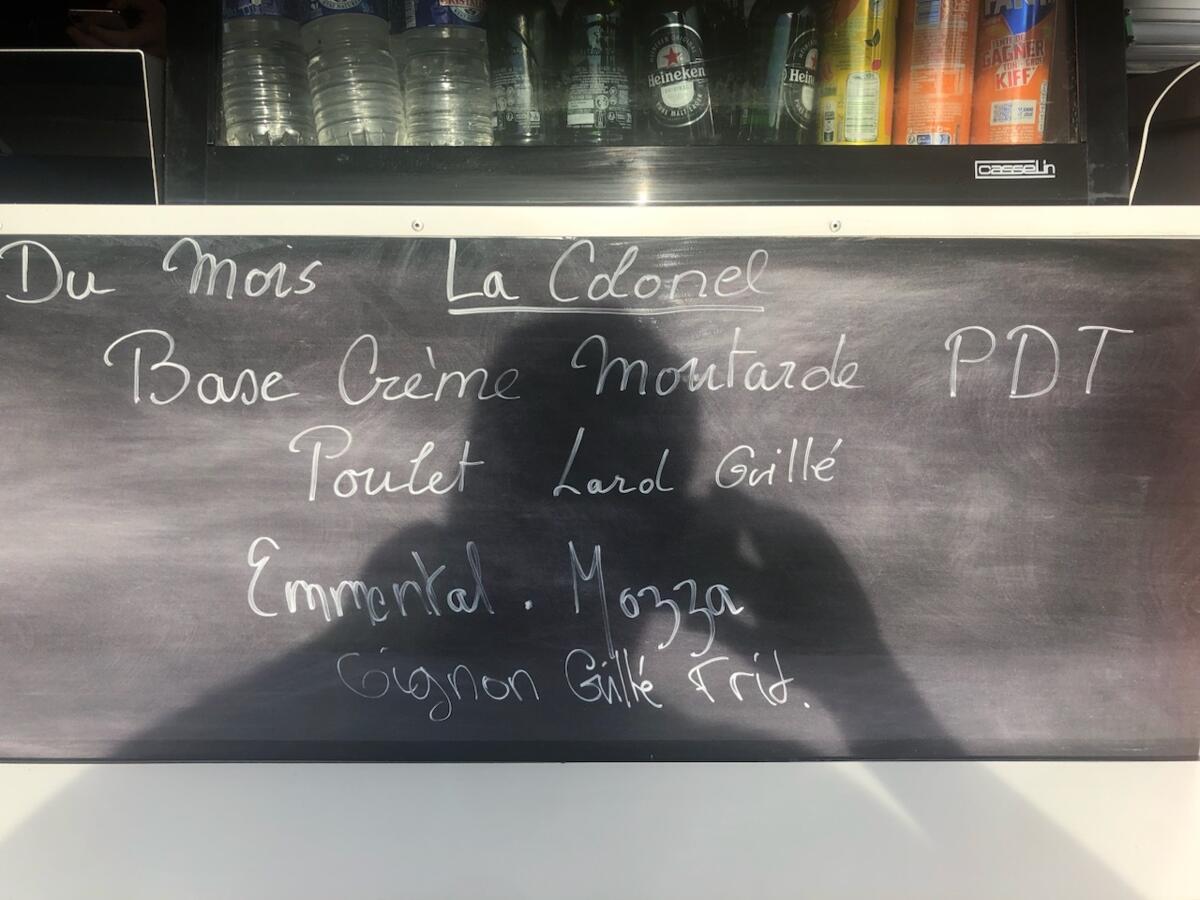 Heineken
Heine
GAGNER
KIFF
casselin
Du Mois La Colonel
Base Crème Moutarde PDT
Poulet Lard Grillé
Emmental. Mozza
Oignon Grillé Frit.